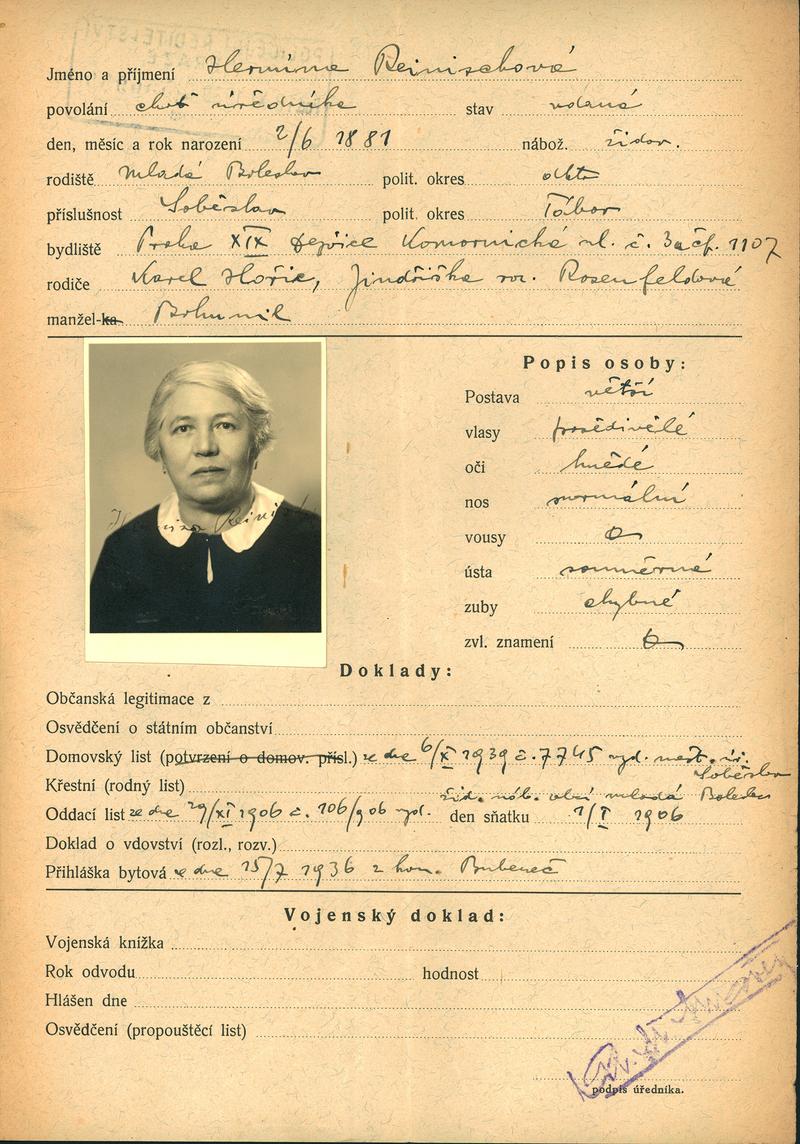 Jméno a příjmení Hermina Reinischová
povolání choť úředníka stav vdaná
den, měsíc a rok narození 2/6 1881 nábož. židov.
rodiště Mladá Boleslav polit. okres dtto
příslušnost Soběslav polit. okres Tábor
bydliště Praha XIX Dejvice Komornická ul. č. 3a čp. 1107
rodiče Karel Hořic, Jindřiška roz. Rosenfeldová
manžel-ka Bohumil
Popis osoby:
Postava větší
vlasy prošedivělé
oči hnědé
nos normální
vousy 0
ústa souměrná
zuby chybné
zvl. znamení 0
Doklady:
Občanská legitimace z
Osvědčení o státním občanství
Domovský list (potvrzení o domov. přísl.) ze dne 6/X 1939 č. 7745 vyd. měst. úř. Soběslav
Křestní (rodný list)
žid. náb. obcí Mladá Boleslav
Oddací list ze dne 29/XI 1906 č. 106/906 vyd. den sňatku 1/I 1906
Doklad o vdovství (rozl., rozv.)
Přihláška bytová ze dne 15/7 1936 z kom. Bubeneč
Vojenský doklad:
Vojenská knížka
Rok odvodu hodnost
Hlášen dne
Osvědčení (propouštěcí list)
podpis úředníka.